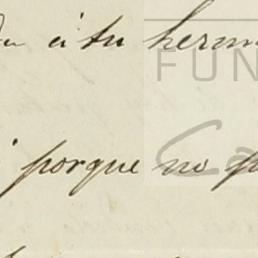 á tu herm
FUN
porque no p
Ca